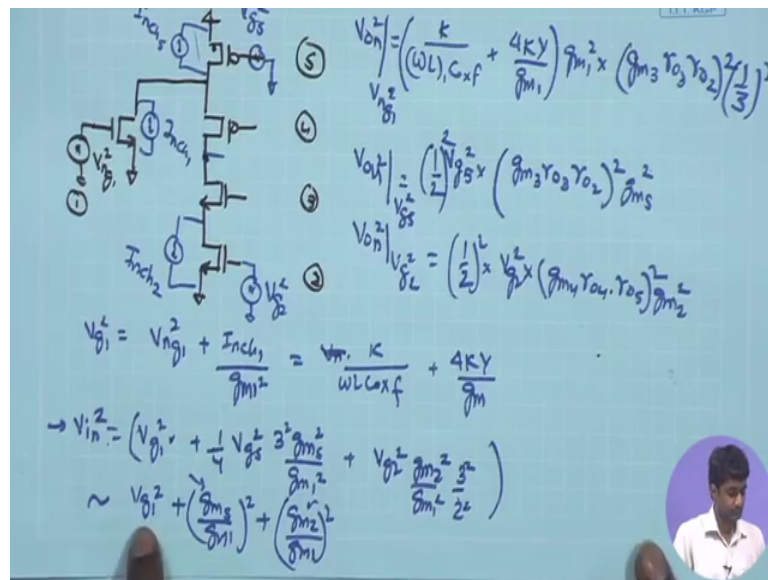 I.I.T. KGP
I_nch_5
V_g5^2
⑤
④
③
②
①
I_nch_1
V_ng_1^2
I_nch_2
V_g2^2
V_on^2|_{V_ng_1^2} = (K/((WL)_1 C_ox f) + 4KY/g_m1) g_m1^2 × (g_m3 r_o3 r_o2)^2 (1/3)^2
V_on^2|_{V_g5^2} = (1/2)^2 V_g5^2 × (g_m3 r_o3 r_o2)^2 g_m5^2
V_on^2|_{V_g2^2} = (1/2)^2 × V_g2^2 × (g_m4 r_o4 . r_o5)^2 g_m2^2
V_g1^2 = V_ng_1^2 + I_nch_1/g_m1^2 = K/(WL C_ox f) + 4KY/g_m
→ V_in^2 = (V_g1^2 + 1/4 V_g5^2 3^2 g_m5^2/g_m1^2 + V_g2^2 g_m2^2/g_m1^2 3^2/2^2)
~ V_g1^2 + (g_m5/g_m1)^2 + (g_m2/g_m1)^2